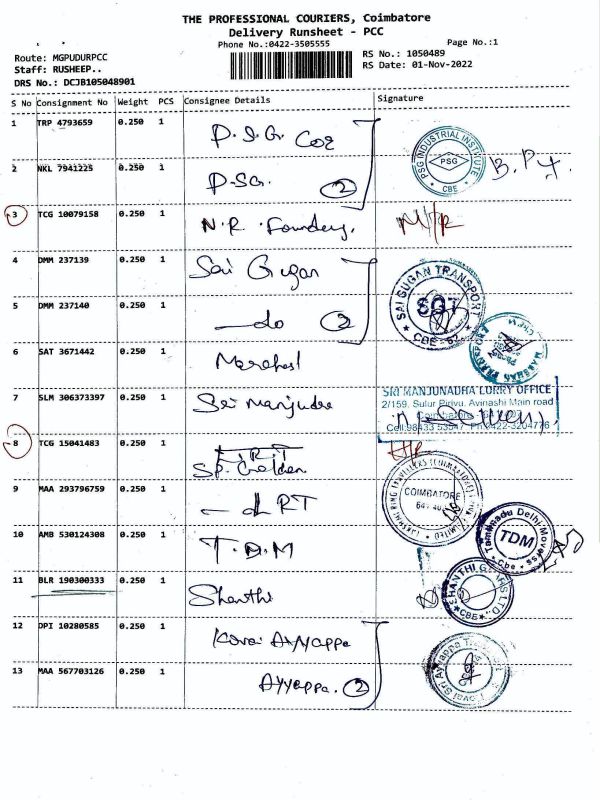 THE PROFESSIONAL COURIERS, Coimbatore
Delivery Runsheet - PCC
Phone No.:0422-3505555
Page No.:1
Route: MGPUDURPCC
RS No.: 1050489
Staff: RUSHEEP..
RS Date: 01-Nov-2022
DRS No.: DCJB105048901
S No Consignment No Weight PCS Consignee Details Signature
1 TRP 4793659 0.250 1 P.S.G. Coe
PSG INDUSTRIAL INSTITUTE
PSG
CBE
2 NKL 7941225 0.250 1 P.SG. 2
3 TCG 10079158 0.250 1 N.R. Foundry.
4 DMM 237139 0.250 1 Sai Gugan
SAI GUGAN TRANSPORT
SGT
CBE - 62
5 DMM 237140 0.250 1 do 2
6 SAT 3671442 0.250 1
7 SLM 306373397 0.250 1 Sri Manjudre
SRI MANJUNADHA LORRY OFFICE
2/159, Sulur Pirivu, Avinashi Main road
Coimbatore
Cell:98433 53547 Ph:0422-3204776
8 TCG 15041483 0.250 1 SP. Golden
9 MAA 293796759 0.250 1 LRT
COIMBATORE
LIMITED
10 AMB 530124308 0.250 1 T.D.M
Tamilnadu Delhi Movers
TDM
Cbe
11 BLR 190300333 0.250 1 Shanthi
SHANTHI GEARS LTD
CBE
12 DPI 10280585 0.250 1 Kovai Ayyappa
Sri Ayyappa
13 MAA 567703126 0.250 1 Ayyappa. 2